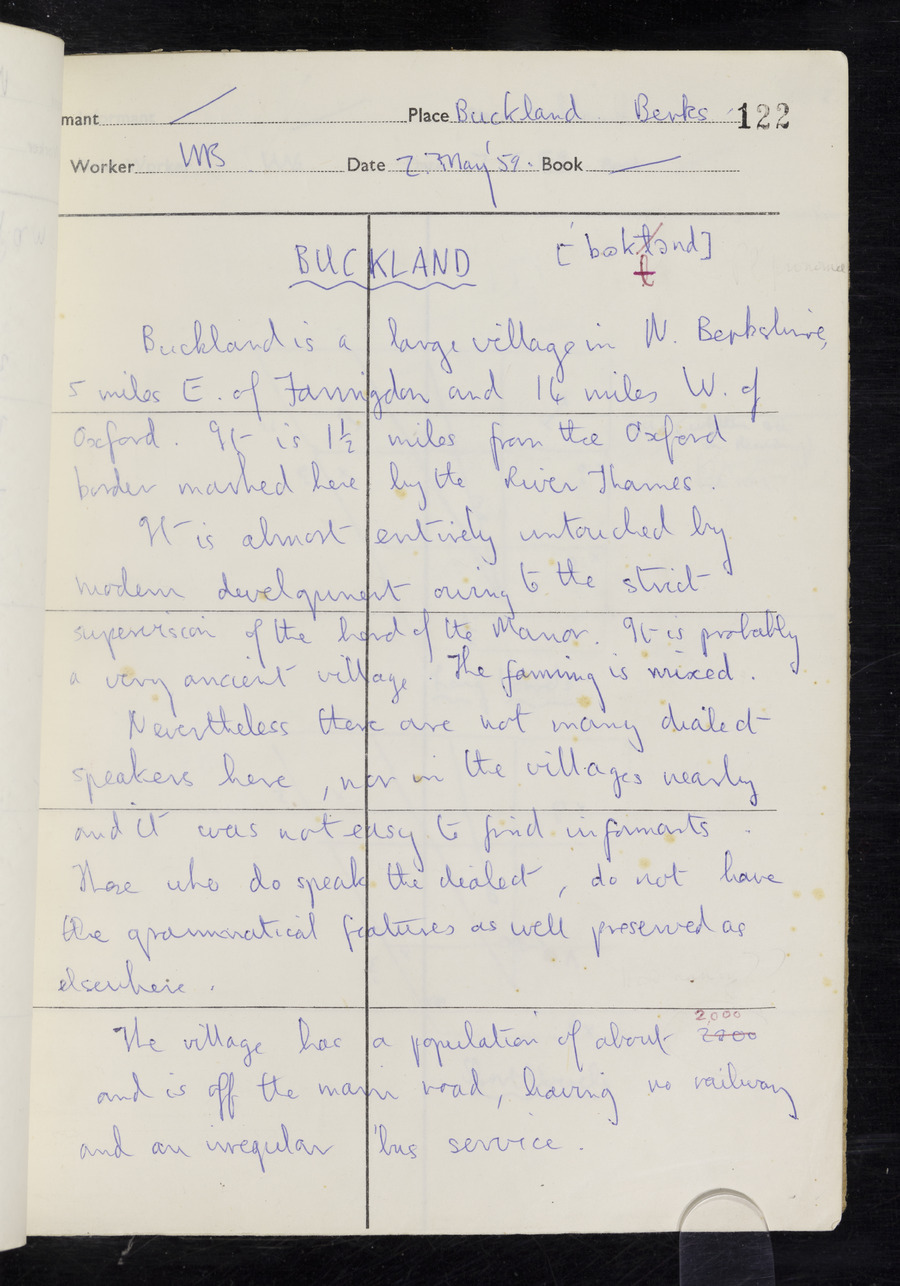 mant Place Buckland Berks 122
Worker WB Date 2. May '59. Book
BUCKLAND
Buckland is a large village in N. Berkshire,
5 miles E. of Farringdon and 14 miles W. of
Oxford. It is 1½ miles from the Oxford
border marked here by the River Thames.
It is almost entirely untouched by
modern development owing to the strict
supervision of the Lord of the Manor. It is probably
a very ancient village. The farming is mixed.
Nevertheless there are not many dialect
speakers here, nor in the villages nearby
and it was not easy to find informants.
Those who do speak the dialect, do not have
the grammatical features as well preserved as
elsewhere.
2,000
The village has a population of about
and is off the main road, having no railway
and an irregular 'bus service.